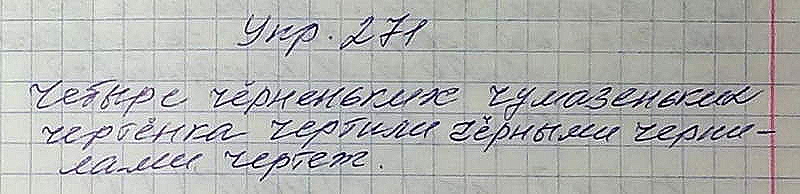 Упр. 271
Четыре чёрненьких чумазеньких
чертёнка чертили чёрными черни-
лами чертеж.